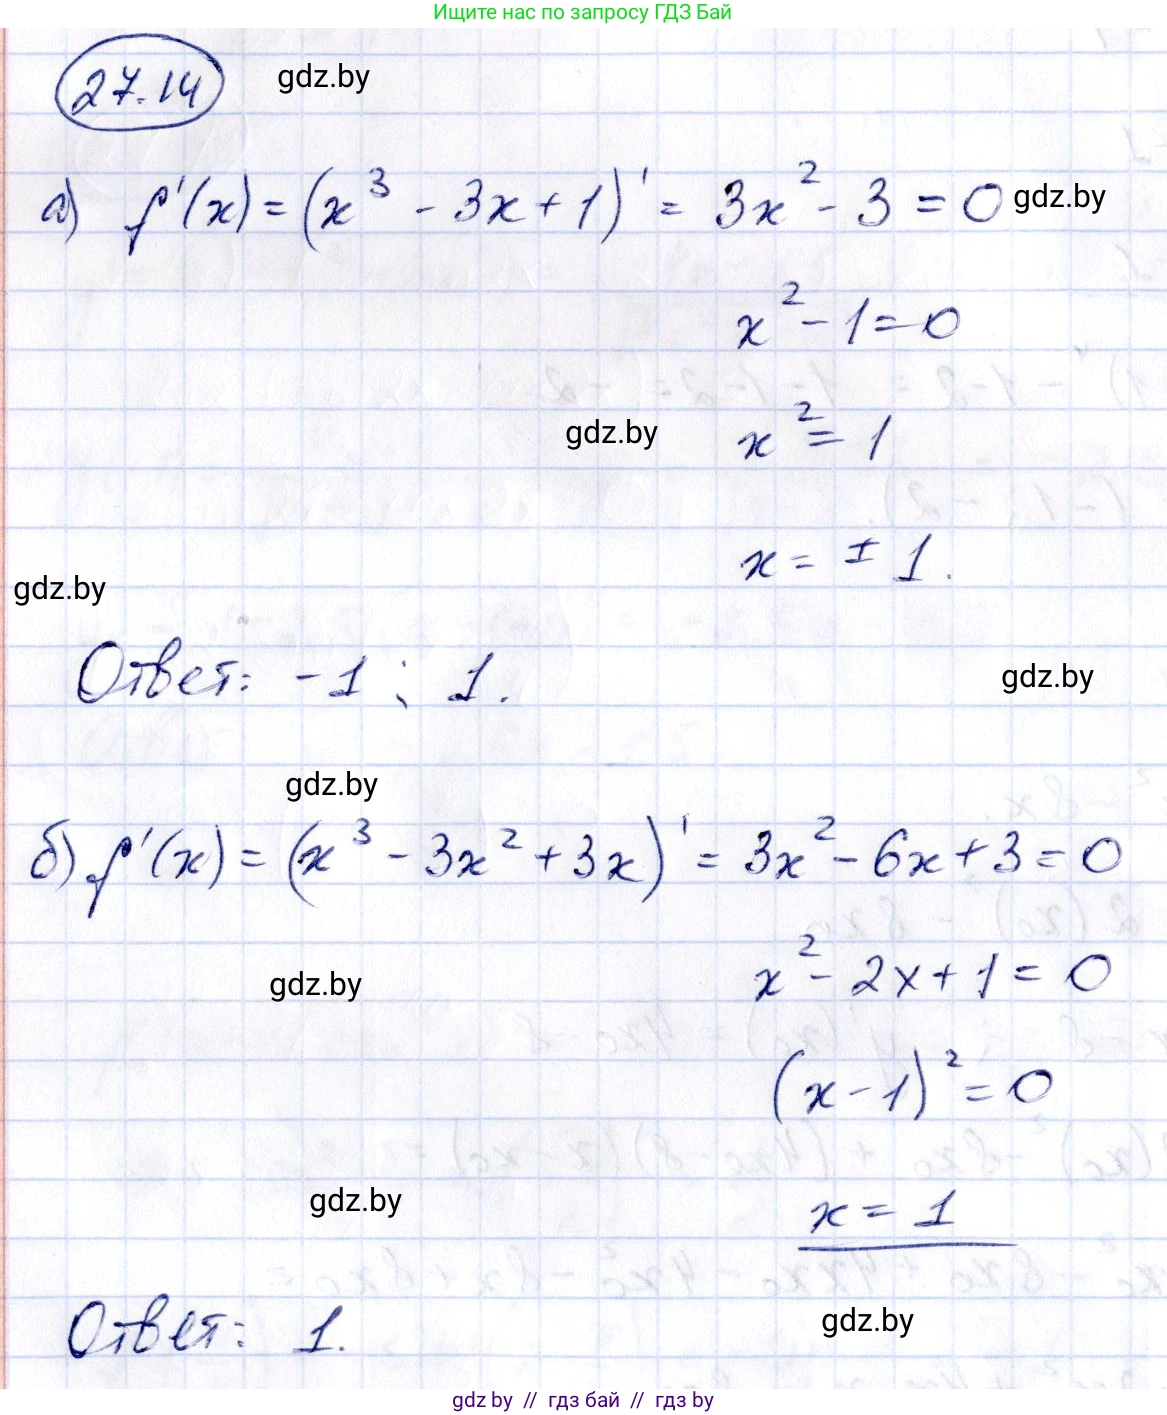 Ищите нас по запросу ГДЗ Бай
27.14 gdz.by
а) f'(x) = (x³ - 3x + 1)' = 3x² - 3 = 0 gdz.by
x² - 1 = 0
gdz.by x² = 1
x = ± 1.
gdz.by
Ответ: -1 ; 1. gdz.by
gdz.by
б) f'(x) = (x³ - 3x² + 3x)' = 3x² - 6x + 3 = 0
gdz.by x² - 2x + 1 = 0
(x - 1)² = 0
gdz.by x = 1
Ответ: 1. gdz.by
gdz.by // гдз бай // гдз by